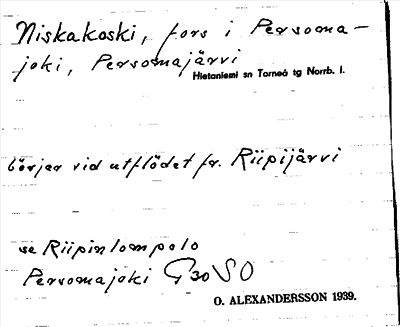 Niskakoski, fors i Persoma-
joki, Persomajärvi
Hietaniemi sn Torneå tg Norrb. l.
börjar vid utflödet fr. Riipijärvi
se Riipinlompolo
Persomajoki G30 SO
O. ALEXANDERSSON 1939.